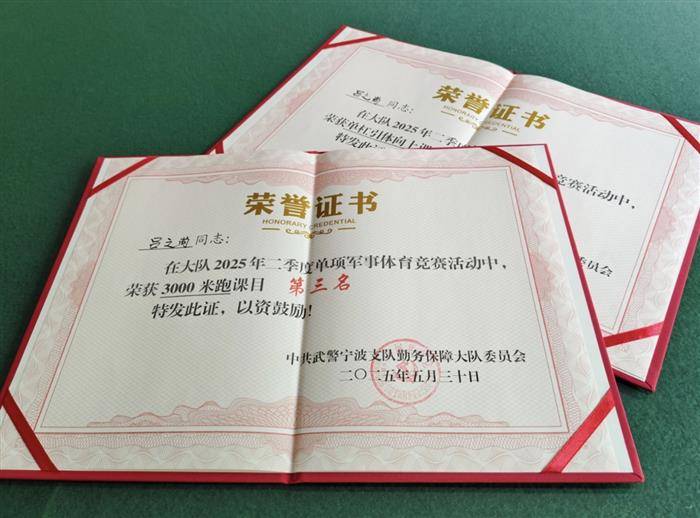 荣誉证书
HONORARY CREDENTIAL
同志:
在大队2025年二季度单项军事体育竞赛活动中，
荣获 3000 米跑课目 第三名
特发此证，以资鼓励!
中共武警宁波支队勤务保障大队委员会
二〇二五年五月三十日
荣誉证书
HONORARY CREDENTIAL
同志:
在大队 2025 年二季
竞赛活动中，
荣获单杠引体向上课
特发此证
员会